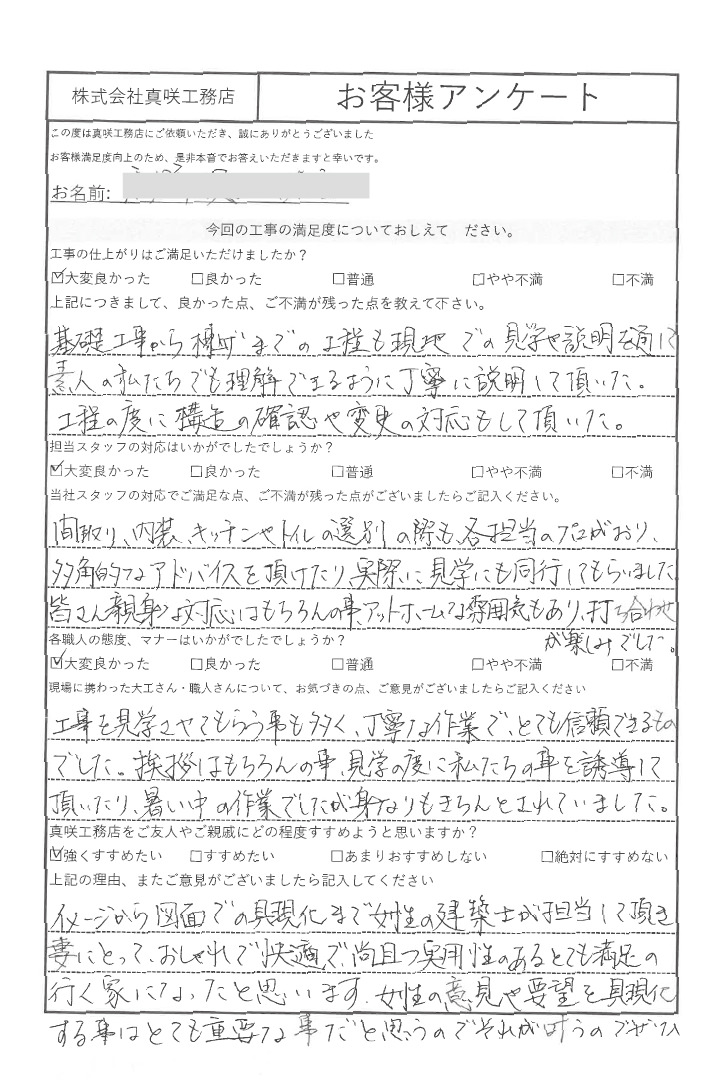 株式会社真咲工務店
お客様アンケート
この度は真咲工務店にご依頼いただき、誠にありがとうございました
お客様満足度向上のため、是非本音でお答えいただきますと幸いです。
お名前:
今回の工事の満足度についておしえて ださい。
工事の仕上がりはご満足いただけましたか？
☑大変良かった □良かった □普通 □やや不満 □不満
上記につきまして、良かった点、ご不満が残った点を教えて下さい。
基礎工事から棟上げまでの工程も現地での見学や説明を通して
素人の私たちでも理解できるように丁寧に説明して頂いた。
工程の度に構造の確認や変更の対応もして頂いた。
担当スタッフの対応はいかがでしたでしょうか？
☑大変良かった □良かった □普通 □やや不満 □不満
当社スタッフの対応でご満足な点、ご不満が残った点がございましたらご記入ください。
間取り、内装、キッチンやトイレの選別の際も、各担当のプロがおり、
多角的なアドバイスを頂けたり、実際に見学にも同行してもらいました
皆さん親身な対応はもちろんの事、アットホームな雰囲気もあり、打ち合わせ
が楽しみでした。
各職人の態度、マナーはいかがでしたでしょうか？
☑大変良かった □良かった □普通 □やや不満 □不満
現場に携わった大工さん・職人さんについて、お気づきの点、ご意見がございましたらご記入ください
工事を見学させてもらう事も多く、丁寧な作業で、とても信頼できるもの
でした。挨拶はもちろんの事、見学の度に私たちの車を誘導して
頂いたり、暑い中の作業でしたが身なりもきちんとされていました。
真咲工務店をご友人やご親戚にどの程度すすめようと思いますか？
☑強くすすめたい □すすめたい □あまりおすすめしない □絶対にすすめない
上記の理由、またご意見がございましたら記入してください
イメージから図面での具現化まで女性の建築士が担当して頂き
妻にとって、おしゃれで快適で、尚且つ実用性のあるとても満足の
行く家になったと思います。女性の意見や要望を具現化
する事はとても重要な事だと思うのでそれが叶うのでぜひ